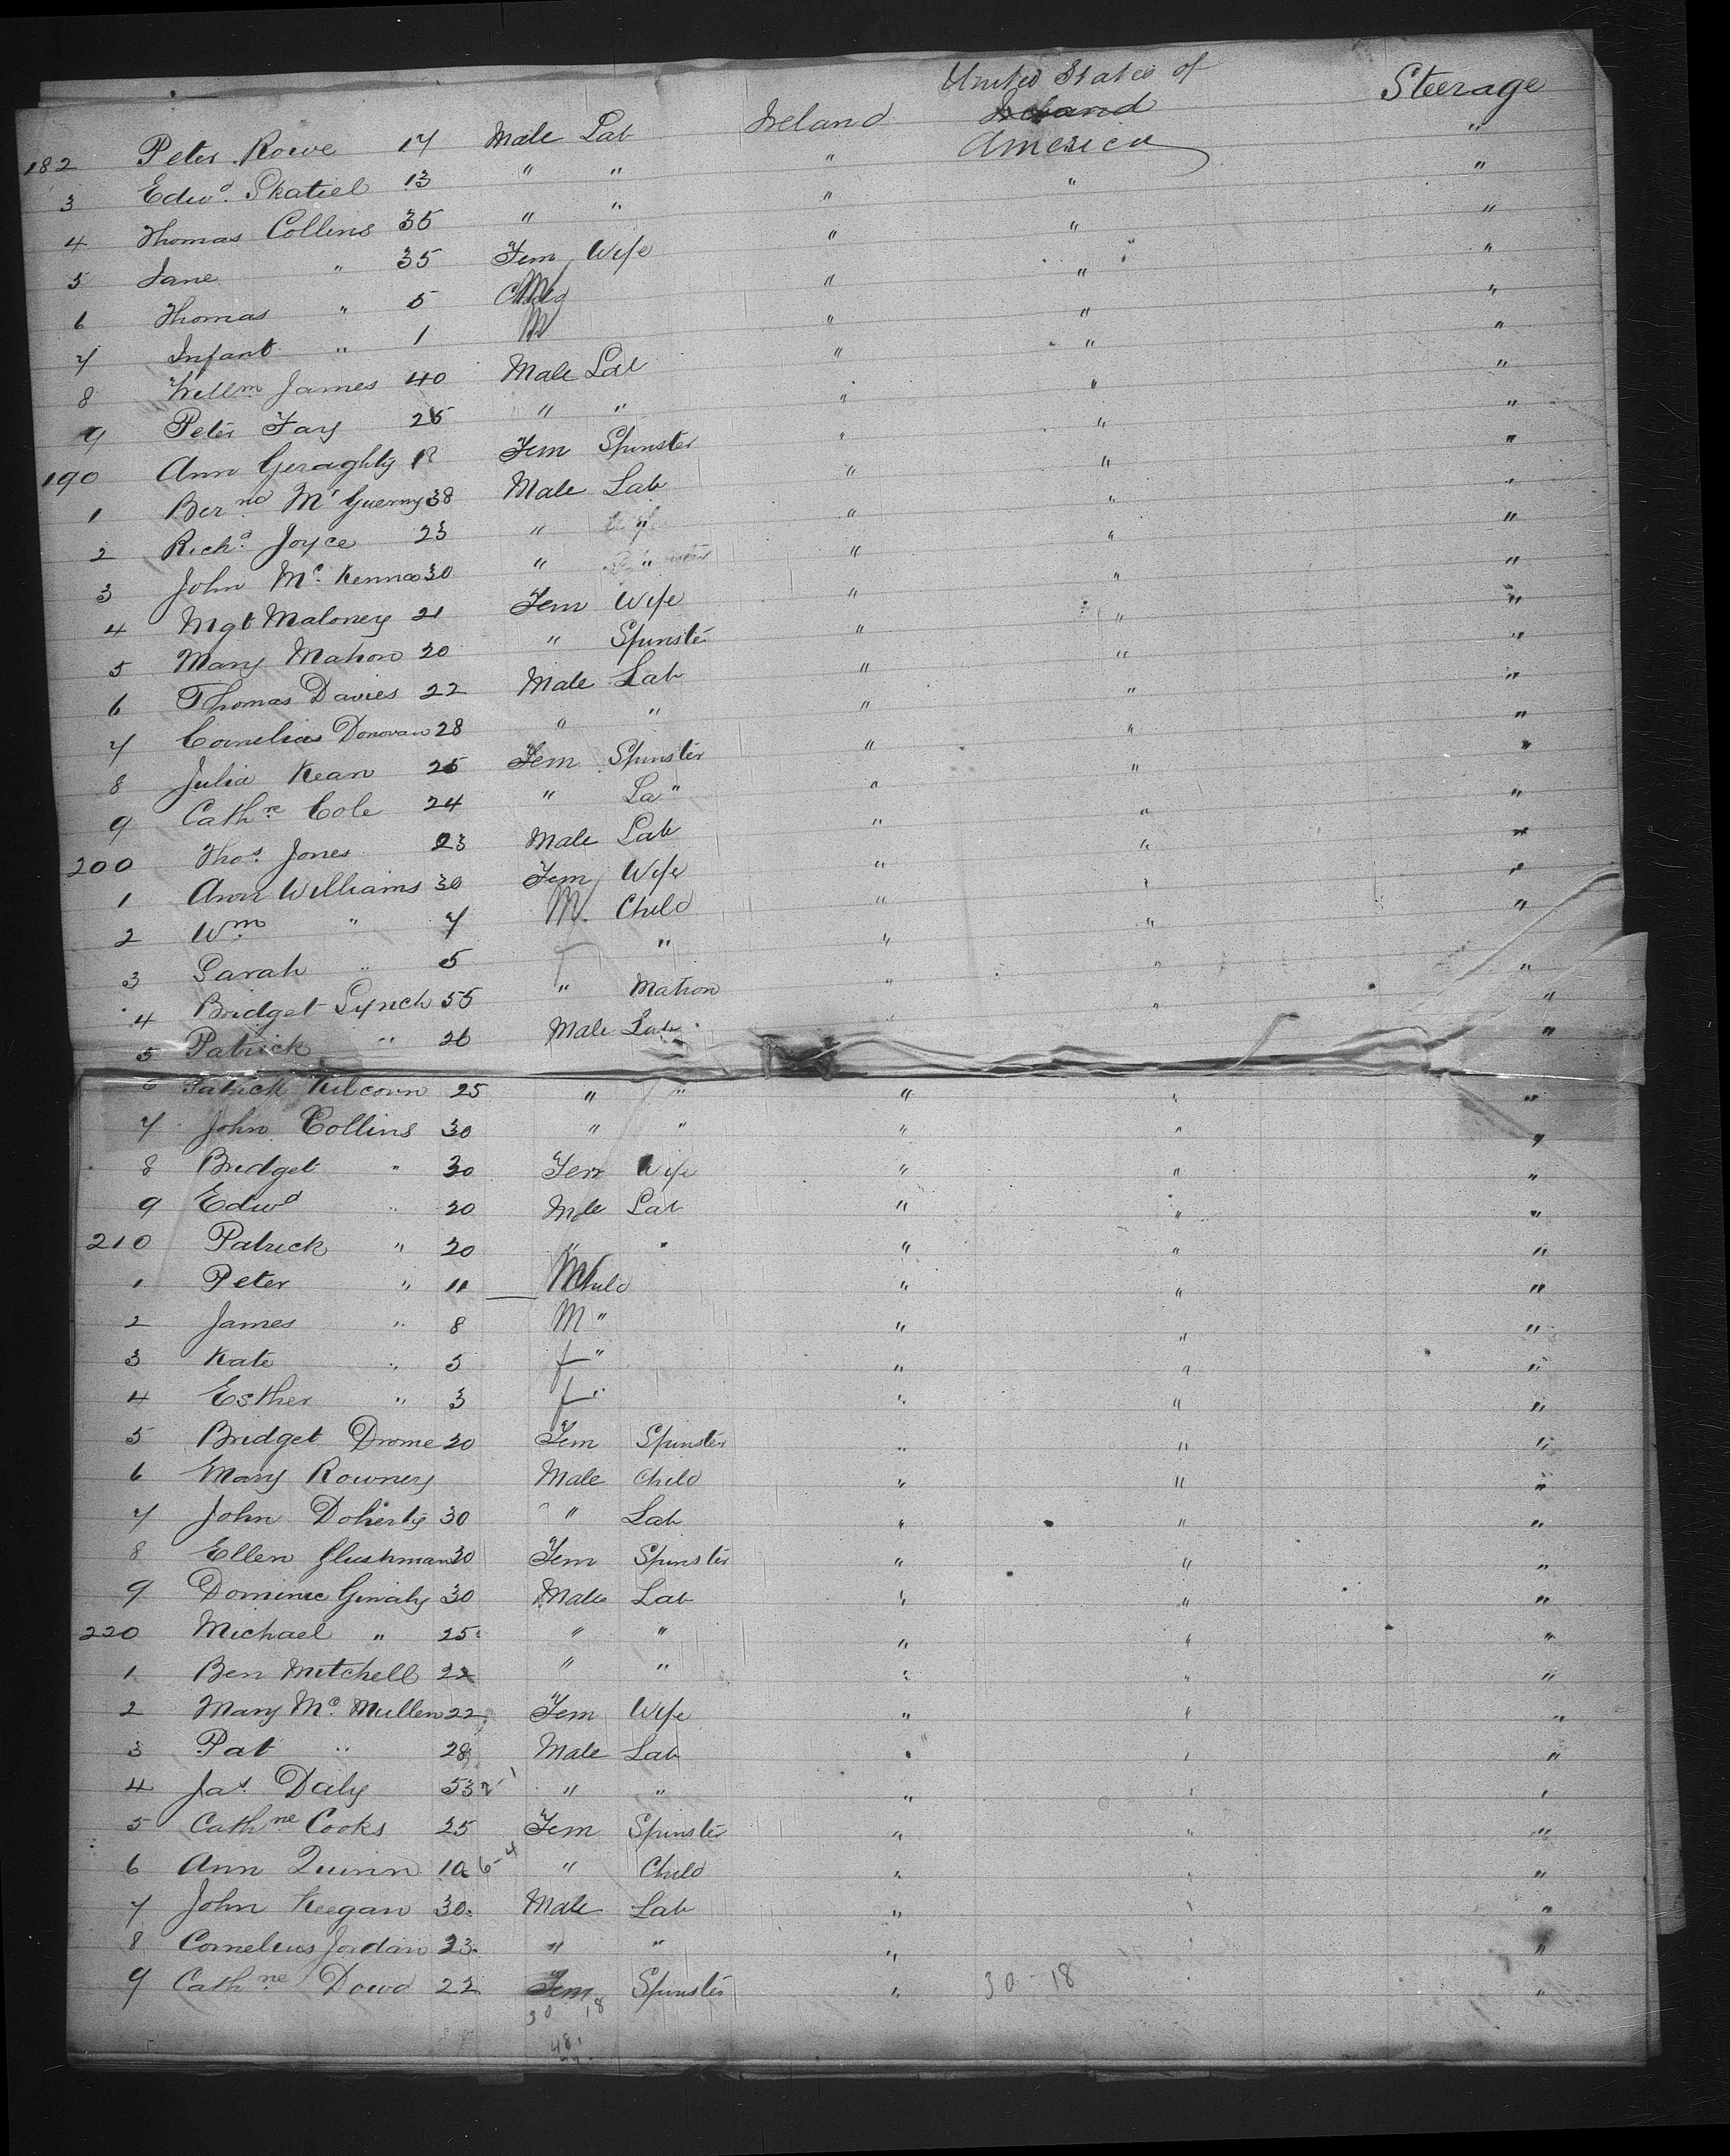 United States of
182 Peter Rowe 17 Male Lab Ireland Ireland America Steerage
3 Edwd. Skatiel 13 " " " "
4 Thomas Collins 35 " " " " "
5 Jane " 35 Fem Wife " " "
6 Thomas " 5 Child M " " "
7 Infant " 1 M " " "
8 Willm James 40 Male Lab " " "
9 Peter Fay 25 " " " " "
190 Ann Geraghty 18 Fem Spinster " " "
1 Bernd Mc 38 Male Lab " " "
2 Richd. Joyce 23 " " " " "
3 John Mc. Kenna 30 " " " " "
4 Mgt Maloney 21 Fem Wife " " "
5 Mary Mahon 20 " Spinster " " "
6 Thomas Davies 22 Male Lab " " "
7 Cornelius Donovan 28 " " " " "
8 Julia Kean 25 Fem Spinster " " "
9 Cathne Cole 24 " La " " " "
200 Thos. Jones 23 Male Lab " " "
1 Ann Williams 30 Fem Wife " " "
2 Wm " 7 M. Child " " "
3 Sarah " 5 " " " "
4 Bridget Lynch 55 " Matron " " "
5 Patrick " 26 Male Lab "
6 Patrick Kilcorn 25 " " " " "
7 John Collins 30 " " " " "
8 Bridget " 30 Fem Wife " " "
9 Edwd " 20 Male Lab " " "
210 Patrick " 20 " " " " "
1 Peter " 11 M Child " " "
2 James " 8 M " " " "
3 Kate " 5 f " " " "
4 Esther " 3 f " " " "
5 Bridget Drome 20 Fem Spinster " " "
6 Mary Rowney Male Child " " "
7 John Doherty 30 " Lab " " "
8 Ellen 30 Fem Spinster " " "
9 Dominic 30 Male Lab " " "
220 Michael " 25 " " " " "
1 Ben Mitchell 22 " " " " "
2 Mary Mc. Mullen 22 Fem Wife " " "
3 Pat " 28 Male Lab " " "
4 Jas. Daly 53 " " " " "
5 Cathne Cooks 25 Fem Spinster " " "
6 Ann Quinn 10 " Child " " "
7 John Keegan 30 Male Lab " " "
8 Cornelius Jordan 23 " " " " "
9 Cathne Dowd 22 Fem Spinster " 30-18 "
30 18
48